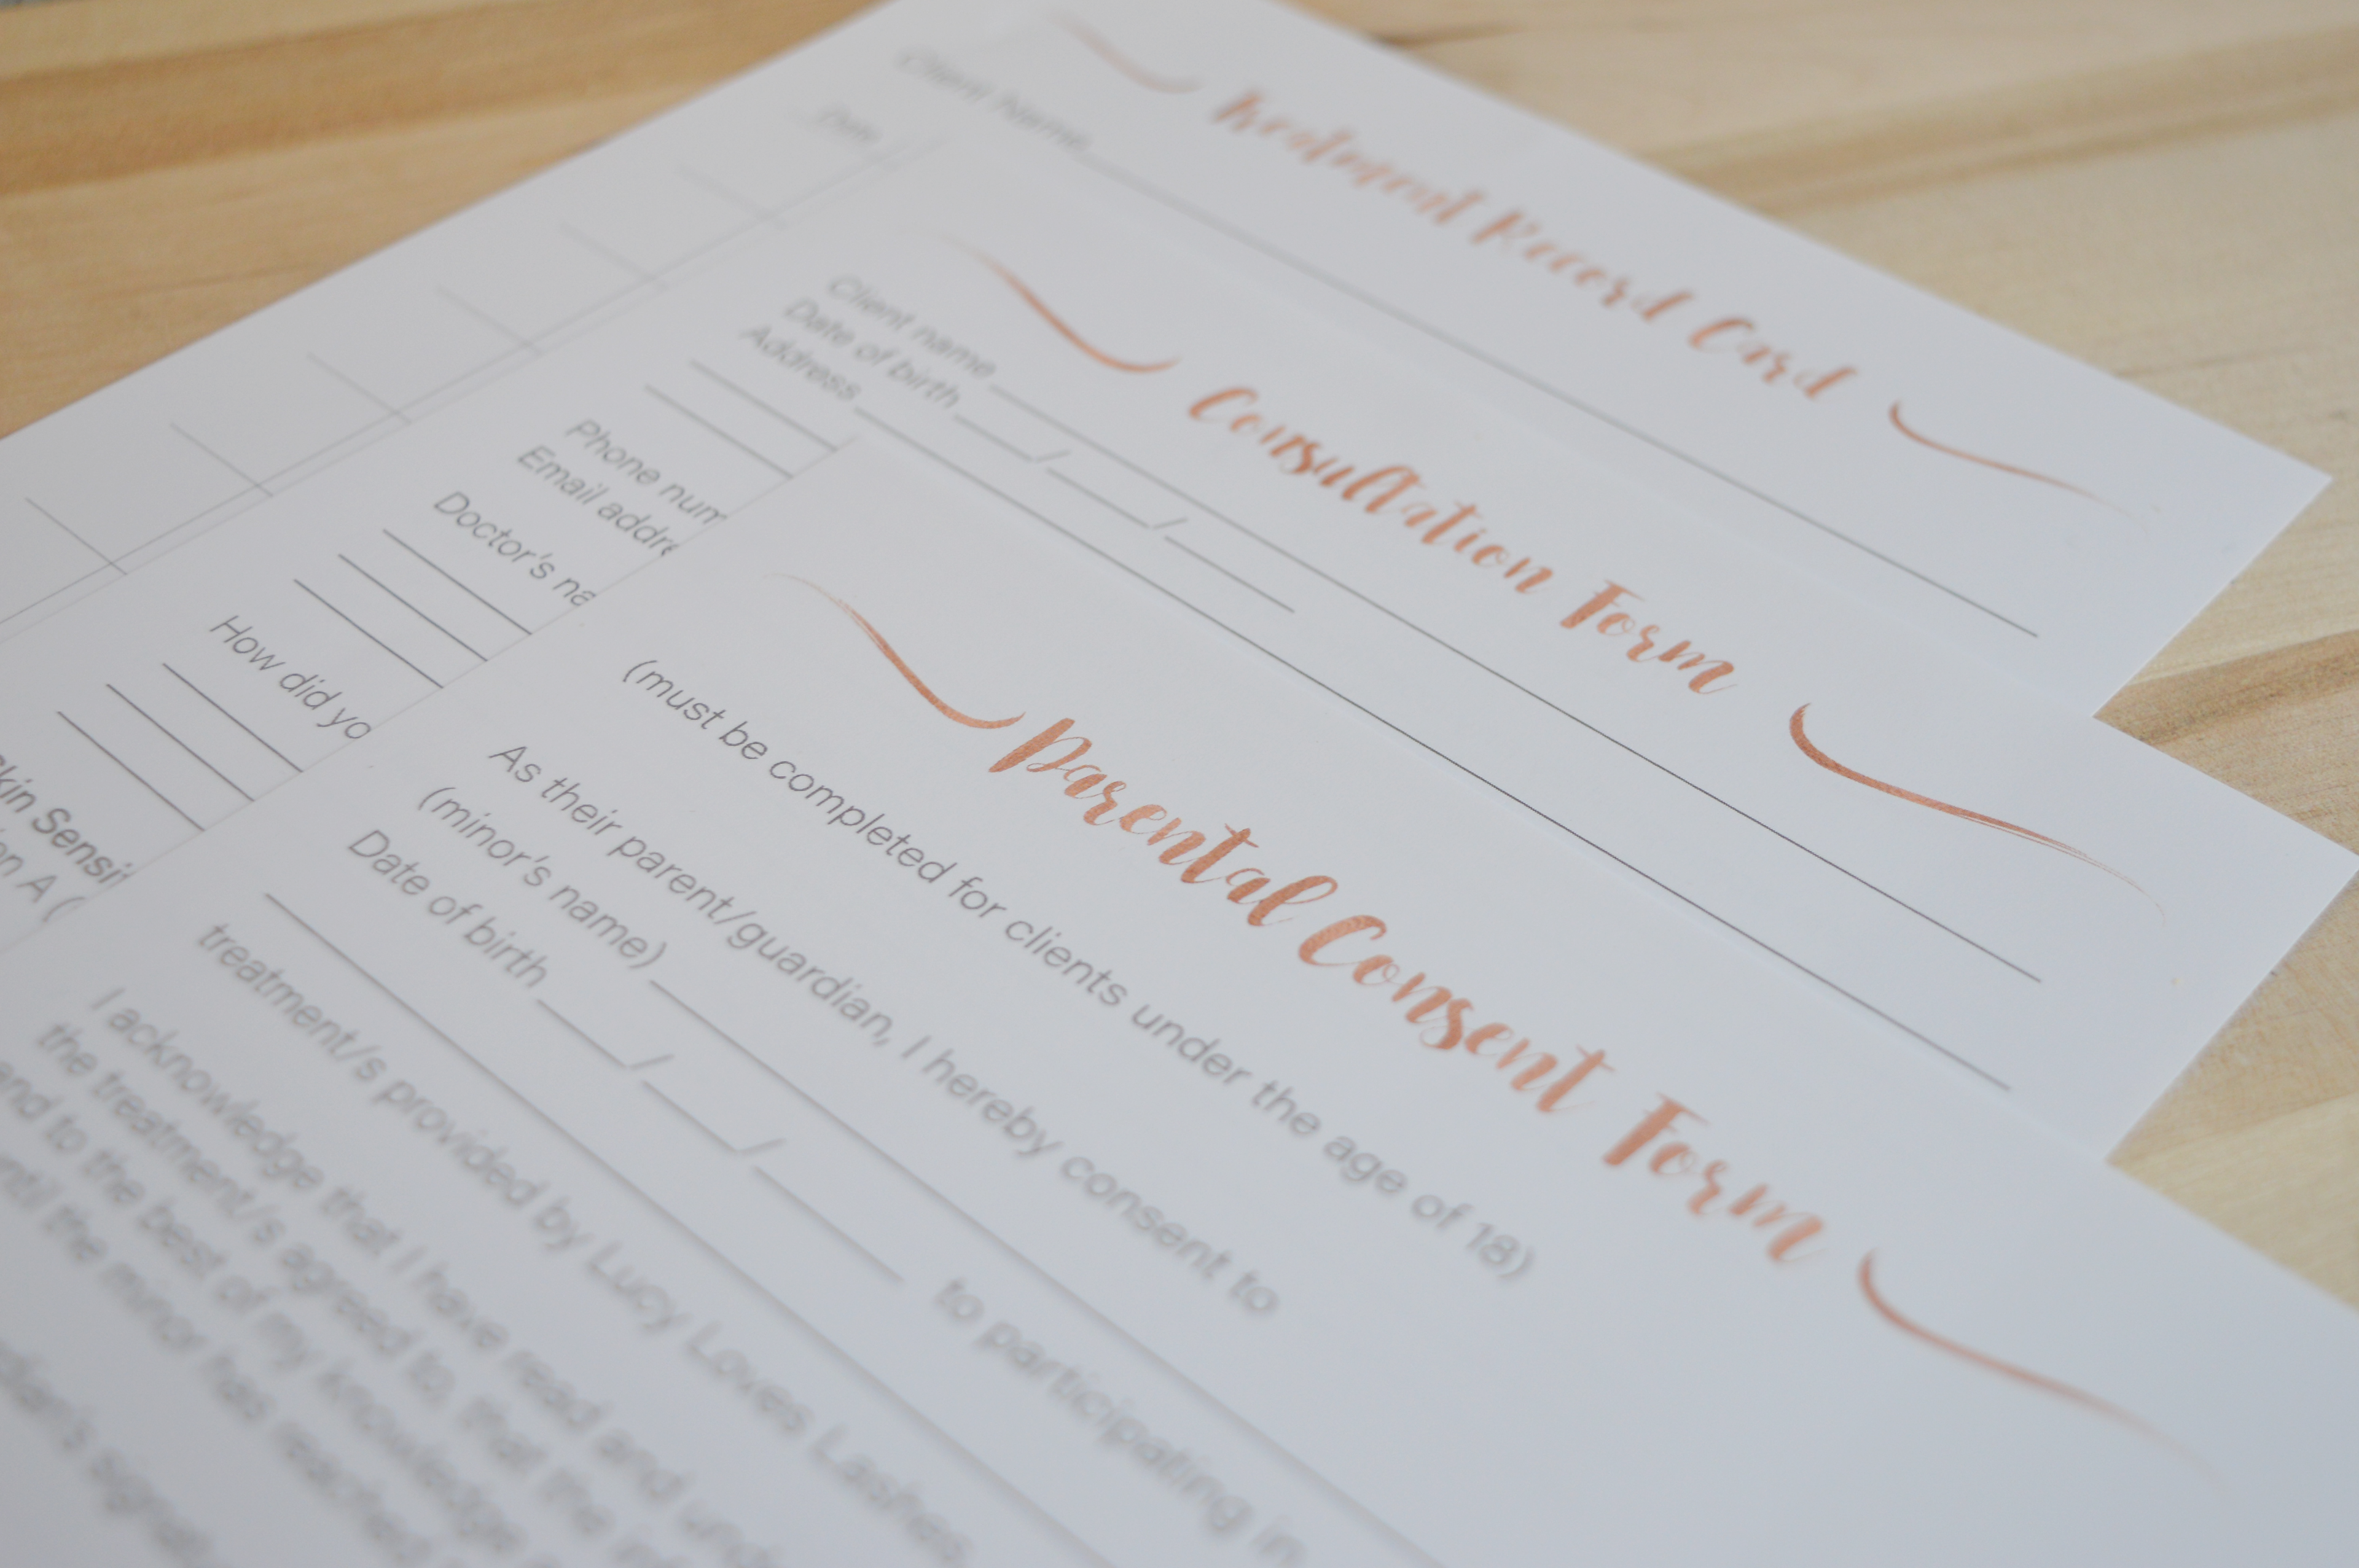 Treatment Record Card
Client Name
Date
Consultation Form
Client name
Date of birth / /
Address
Phone num
Email addre
Doctor's na
How did yo
kin Sensit
on A (
Parental Consent Form
(must be completed for clients under the age of 18)
As their parent/guardian, I hereby consent to
(minor's name)
Date of birth / / to participating in
treatment/s provided by Lucy Loves Lashes.
I acknowledge that I have read and und
the treatment/s agreed to, that the inf
and to the best of my knowledge
ntil the minor has reached
dian's signat